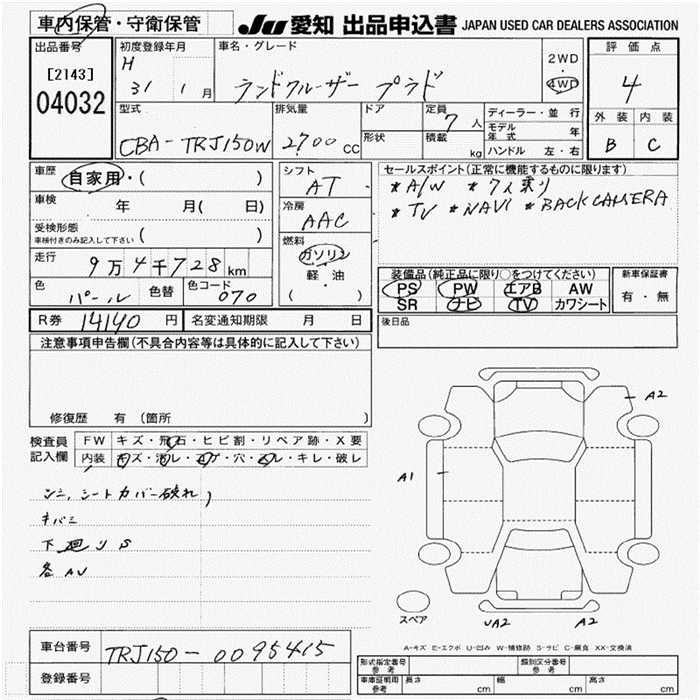 車内保管・守衛保管
JU 愛知 出品申込書 JAPAN USED CAR DEALERS ASSOCIATION
出品番号
[2143]
04032
初度登録年月
H
31 1月
車名・グレード
ランドクルーザー プラド
2WD
4WD
評価点
4
外装 内装
B C
型式
CBA-TRJ150W
排気量
2700cc
ドア
形状
定員
7人
積載
kg
ディーラー・並行
モデル年式 年
ハンドル 左・右
車歴
自家用・( )
車検
年 月( 日)
受検形態
車検付きのみ記入して下さい ( )
走行
9万4千728km
色
パール
色替
色コード
070
シフト
AT
冷房
AAC
燃料
ガソリン
軽・油
( ・ )
セールスポイント(正常に機能するものに限ります)
*A/W *7人乗り
*TV *NAVI *BACK CAMERA
装備品(純正品に限り○をつけてください)
PS PW エアB AW
SR ナビ TV カワシート
新車保証書
有・無
R券 14140 円
名変通知期限 月 日
後日品
注意事項申告欄(不具合内容等は具体的に記入して下さい)
修復歴 有(箇所 )
検査員記入欄
FW キズ・飛石・ヒビ割・リペア跡・X要
内装 キズ・汚レ・コゲ・穴・ヌレ・キレ・破レ
シミ、シートカバー破れ,
キバミ
下廻りS
各AU
A2
A1
スペア
UA2 A2
A-キズ E-エクボ U-凹み W-補修跡 S-サビ C-腐食 XX-交換済
車台番号
TRJ150-0095415
登録番号
形式指定番号 参考
類別区分番号 参考
車庫証明用 参考
長さ cm 幅 cm 高さ cm